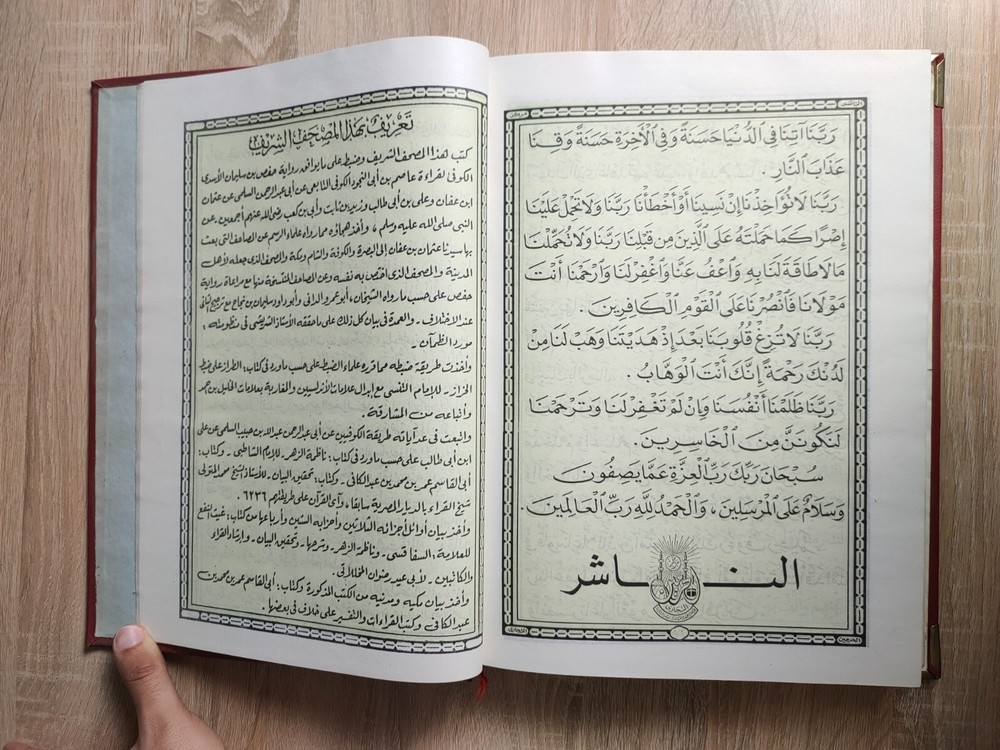 رَبَّنَا آتِنَا فِي الدُّنْيَا حَسَنَةً وَفِي الْآخِرَةِ حَسَنَةً وَقِنَا
عَذَابَ النَّارِ .
رَبَّنَا لَا تُؤَاخِذْنَا إِنْ نَسِينَا أَوْ أَخْطَأْنَا رَبَّنَا وَلَا تَحْمِلْ عَلَيْنَا
إِصْرًا كَمَا حَمَلْتَهُ عَلَى الَّذِينَ مِنْ قَبْلِنَا رَبَّنَا وَلَا تُحَمِّلْنَا
مَا لَا طَاقَةَ لَنَا بِهِ وَاعْفُ عَنَّا وَاغْفِرْ لَنَا وَارْحَمْنَا أَنْتَ
مَوْلَانَا فَانْصُرْنَا عَلَى الْقَوْمِ الْكَافِرِينَ .
رَبَّنَا لَا تُزِغْ قُلُوبَنَا بَعْدَ إِذْ هَدَيْتَنَا وَهَبْ لَنَا مِنْ
لَدُنْكَ رَحْمَةً إِنَّكَ أَنْتَ الْوَهَّابُ .
رَبَّنَا ظَلَمْنَا أَنْفُسَنَا وَإِنْ لَمْ تَغْفِرْ لَنَا وَتَرْحَمْنَا
لَنَكُونَنَّ مِنَ الْخَاسِرِينَ .
سُبْحَانَ رَبِّكَ رَبِّ الْعِزَّةِ عَمَّا يَصِفُونَ
وَسَلَامٌ عَلَى الْمُرْسَلِينَ ، وَالْحَمْدُ لِلَّهِ رَبِّ الْعَالَمِينَ .
الناشر
تعريف بهذا المصحف الشريف
كتب هذا المصحف الشريف وضبط على ما يوافق رواية حفص بن سليمان الأسدى
الكوفى لقراءة عاصم بن أبى النجود الكوفى التابعى عن أبى عبد الرحمن السلمى عن عثمان
ابن عفان وعلى بن أبى طالب وزيد بن ثابت وأبى بن كعب رضى الله عنهم أجمعين ، عن
النبى صلى الله عليه وسلم ، وأخذ هجاؤه مما رواه علماء الرسم عن المصاحف التى بعث
بها سيدنا عثمان بن عفان إلى البصرة والكوفة والشام ومكة والمصحف الذى جعله لأهل
المدينة والمصحف الذى اختص به نفسه وعن المصاحف المنتسخة منها مع مراعاة رواية
حفص على حسب ما رواه الشيخان ، أبو عمرو الدانى وأبو داود سليمان بن نجاح مع ترجيح الثانى
عند الاختلاف . والعمدة فى بيان كل ذلك على ما حققه الأستاذ الشريشى فى منظومته :
مورد الظمآن .
وأخذت طريقة ضبطه مما قرره علماء الضبط على حسب ما ورد فى كتاب : الطراز على ضبط
الخراز . للإمام التنسى مع إبدال علامات الأندلسيين والمغاربة بعلامات الخليل بن احمد
وأتباعه من المشارقة .
واتبعت فى عد آياته طريقة الكوفيين عن أبى عبد الرحمن عبد الله بن حبيب السلمى عن على
ابن أبى طالب على حسب ما ورد فى كتاب : ناظمة الزهر . للإمام الشاطبى . وكتاب :
أبى القاسم عمر بن محمد بن عبد الكافى . وكتاب : تحقيق البيان . للأستاذ الشيخ محمد المتولى
شيخ القراء بالديار المصرية سابقا ، وآى القرآن على طريقتهم ٦٢٣٦ .
وأخذ بيان أوائل أجزائه الثلاثين وأحزابه الستين وأرباعها من كتاب : غيث النفع
للعلامة : السفاقسى . وناظمة الزهر . وشرحها . وتحقيق البيان . وإرشاد القراء
والكاتبين . لأبى عيد رضوان المخللاتى .
وأخذ بيان مكيه ومدنيه من الكتب المذكورة وكتاب : أبى القاسم عمر بن محمد بن
عبد الكافى . وكتب القراءات والتفسير على خلاف فى بعضها .